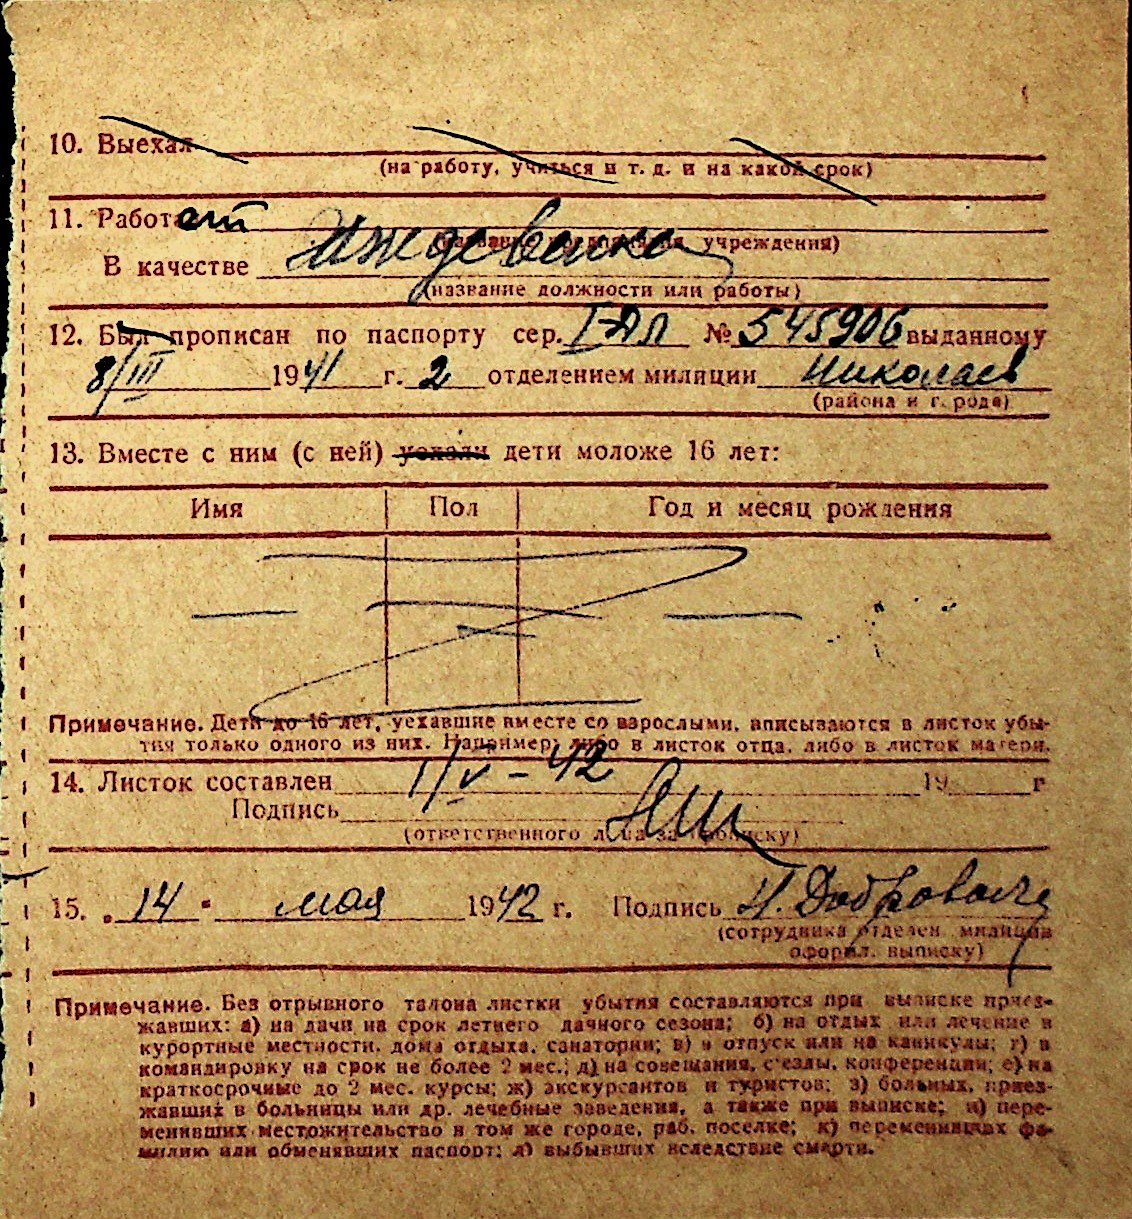 10. Выехал
(на работу, учиться и т. д. и на какой срок)
11. Работает
(название предприятия, учреждения)
В качестве Иждевенка
(название должности или работы)
12. Был прописан по паспорту сер. I-ЯЛ № 545906 выданному
8/III 1941 г. 2 отделением милиции Николаев
(района и города)
13. Вместе с ним (с ней) уехали дети моложе 16 лет:
Имя Пол Год и месяц рождения
Примечание. Дети до 16 лет, уехавшие вместе со взрослыми, вписываются в листок убы-
тия только одного из них. Например, либо в листок отца, либо в листок матери.
14. Листок составлен 1/V-42 19 г
Подпись
(ответственного лица за прописку)
15. „14" мая 1942 г. Подпись Н. Добровольс
(сотрудника отделен. милиции
оформ. выписку)
Примечание. Без отрывного талона листки убытия составляются при выписке приез-
жавших: а) на дачи на срок летнего дачного сезона; б) на отдых или лечение в
курортные местности, дома отдыха, санатории; в) в отпуск или на каникулы; г) в
командировку на срок не более 2 мес.; д) на совещания, съезды, конференции; е) на
краткосрочные до 2 мес. курсы; ж) экскурсантов и туристов; з) больных, приез-
жавших в больницы или др. лечебные заведения, а также при выписке; и) пере-
менивших местожительство в том же городе, раб. поселке; к) переменивших фа-
милию или обменявших паспорт; л) выбывших вследствие смерти.